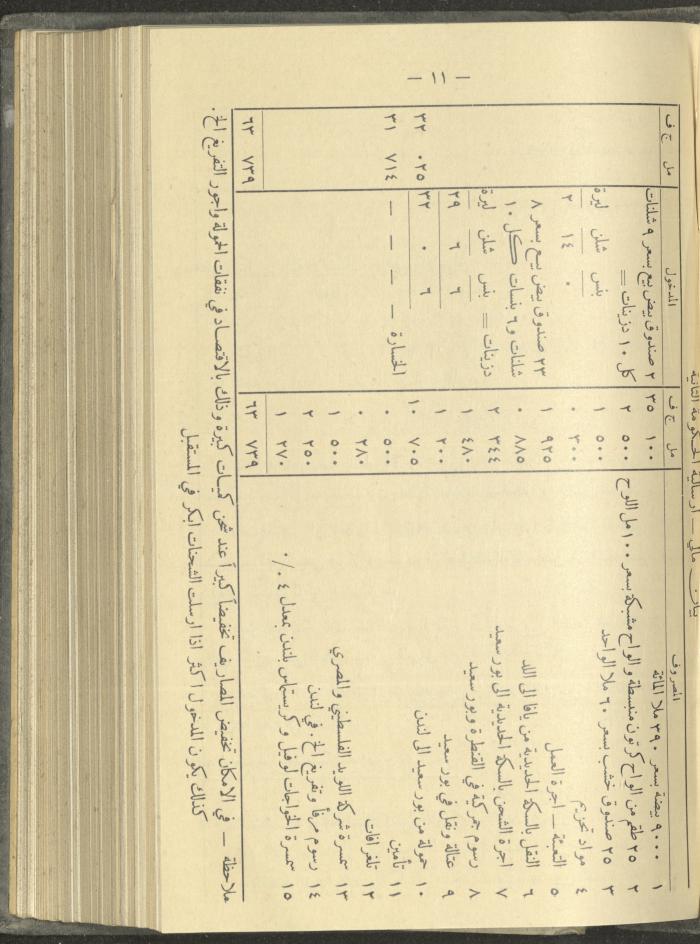 — ١١ —
بيان مالي — ارسالية الحكومة الثانية
المصروف مل ج ف المدخول مل ج ف
١ ٩٠٠٠ بيضة بسعر ٣٩٠ ملا المائة ١٠٠ ٣٥ ٢ صندوق بيض بيع بسعر ٩ شلنات
٢ ٢٥ طقم من الواح كرتون منبسطة والواح مشبكة بسعر ١٠٠ مل اللوح ٥٠٠ ٢ كل ١٠ دزينات =
٣ ٢٥ صندوق خشب بسعر ٦٠ ملا الواحد ٥٠٠ ١ بنس شلن ليرة
٤ مواد تحزيم ٣٠٠ ٠ ٠ ١٤ ٢
٥ التعبئة — اجرة العمل ٩٢٥ ١ ٢٣ صندوق بيض بيع بسعر ٨
٦ النقل بالسكة الحديدية من يافا الى اللد ٨٨٥ ٠ شلنات و ٦ بنسات كل ١٠
٧ اجرة الشحن بالسكة الحديدية الى بور سعيد ٣٤٤ ٢ دزينات = بنس شلن ليرة
٨ رسوم جمركية في القنطرة وبور سعيد ٤٨٠ ١ ٦ ٦ ٢٩
٩ عتالة ونقل في بور سعيد ٢٠٠ ١ ٦ ٠ ٣٢ ٠٢٥ ٣٢
١٠ حمولة من بور سعيد الى لندن ٧٠٥ ١٠
١١ تأمين ٥٠٠ ٠ الخسارة — — — — ٧١٤ ٣١
١٢ تلغرافات ٢٨٠ ٠
١٣ سمسرة شركة اللويد الفلسطيني والمصري ٥٠٠ ١
١٤ رسوم مرفأ وتفريغ الخ. في لندن ٢٥٠ ٢
١٥ سمسرة الخواجات لوفيل وكريستماس بلندن بمعدل ٤ ٠/٠ ٢٧٠ ١
٧٣٩ ٦٣ ٧٣٩ ٦٣
ملاحظة — في الامكان تخفيض المصاريف تخفيضاً كبيراً عند شحن كميات كبيرة وذلك بالاقتصاد في نفقات الحمولة واجور التفريغ الخ.
كذلك يكون المدخول اكثر اذا ارسلت الشحنات ابكر في المستقبل